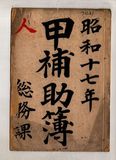 昭和十七年
甲補助簿
人
総務課